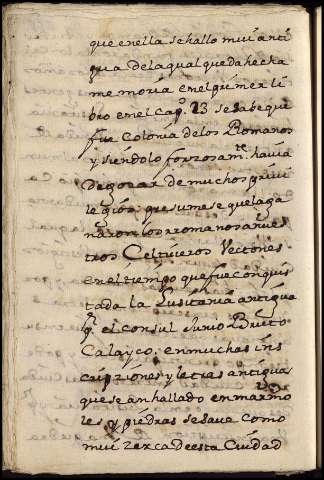 que en ella se hallo mui anti
gua de la qual queda hecha
memoria en el primer li
bro en el cap.º 13 se sabe que
fue Colonia de los Romanos
y siendolo forzosam.te havia
de gozar de muchos privi
legios: presumese que la ga
naron los rromanos a nues
tros Celtiveros Vectones
en el tiempo que fue conquis
tada la Lusitania antigua
p.r el Consul Junio Bruto
Calayco. en muchas ins
cripziones y letras antiguas
que se an hallado en marmo
les y piedras se save como
mui zerca de esta Ciudad